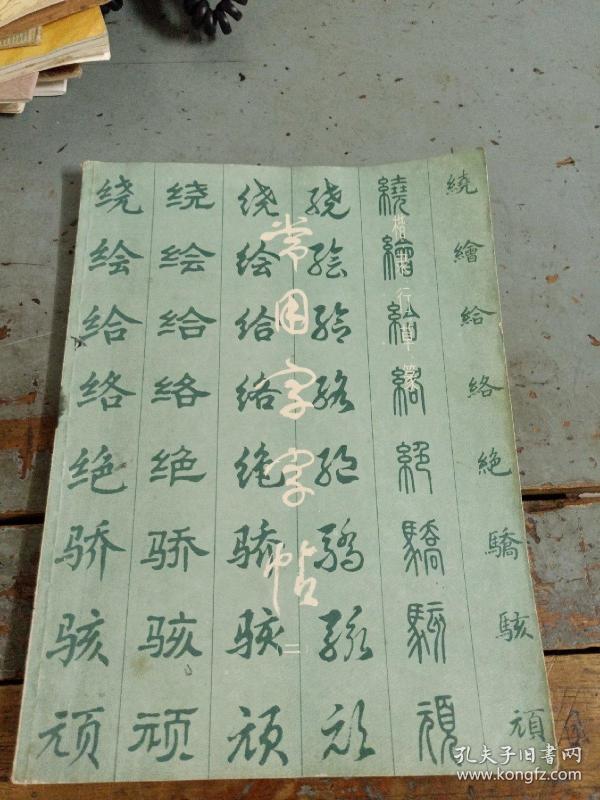 常用字字帖
二
楷隶行草篆
绕 绕 绕 绕 繞 繞
绘 绘 绘 绘 繪 繪
给 给 给 给 給 給
络 络 络 络 絡 絡
绝 绝 绝 绝 絕 絶
骄 骄 骄 驕 驕 驕
骇 骇 骇 駭 駭 駭
顽 顽 顽 顽 頑 頑
孔夫子旧书网
www.kongfz.com